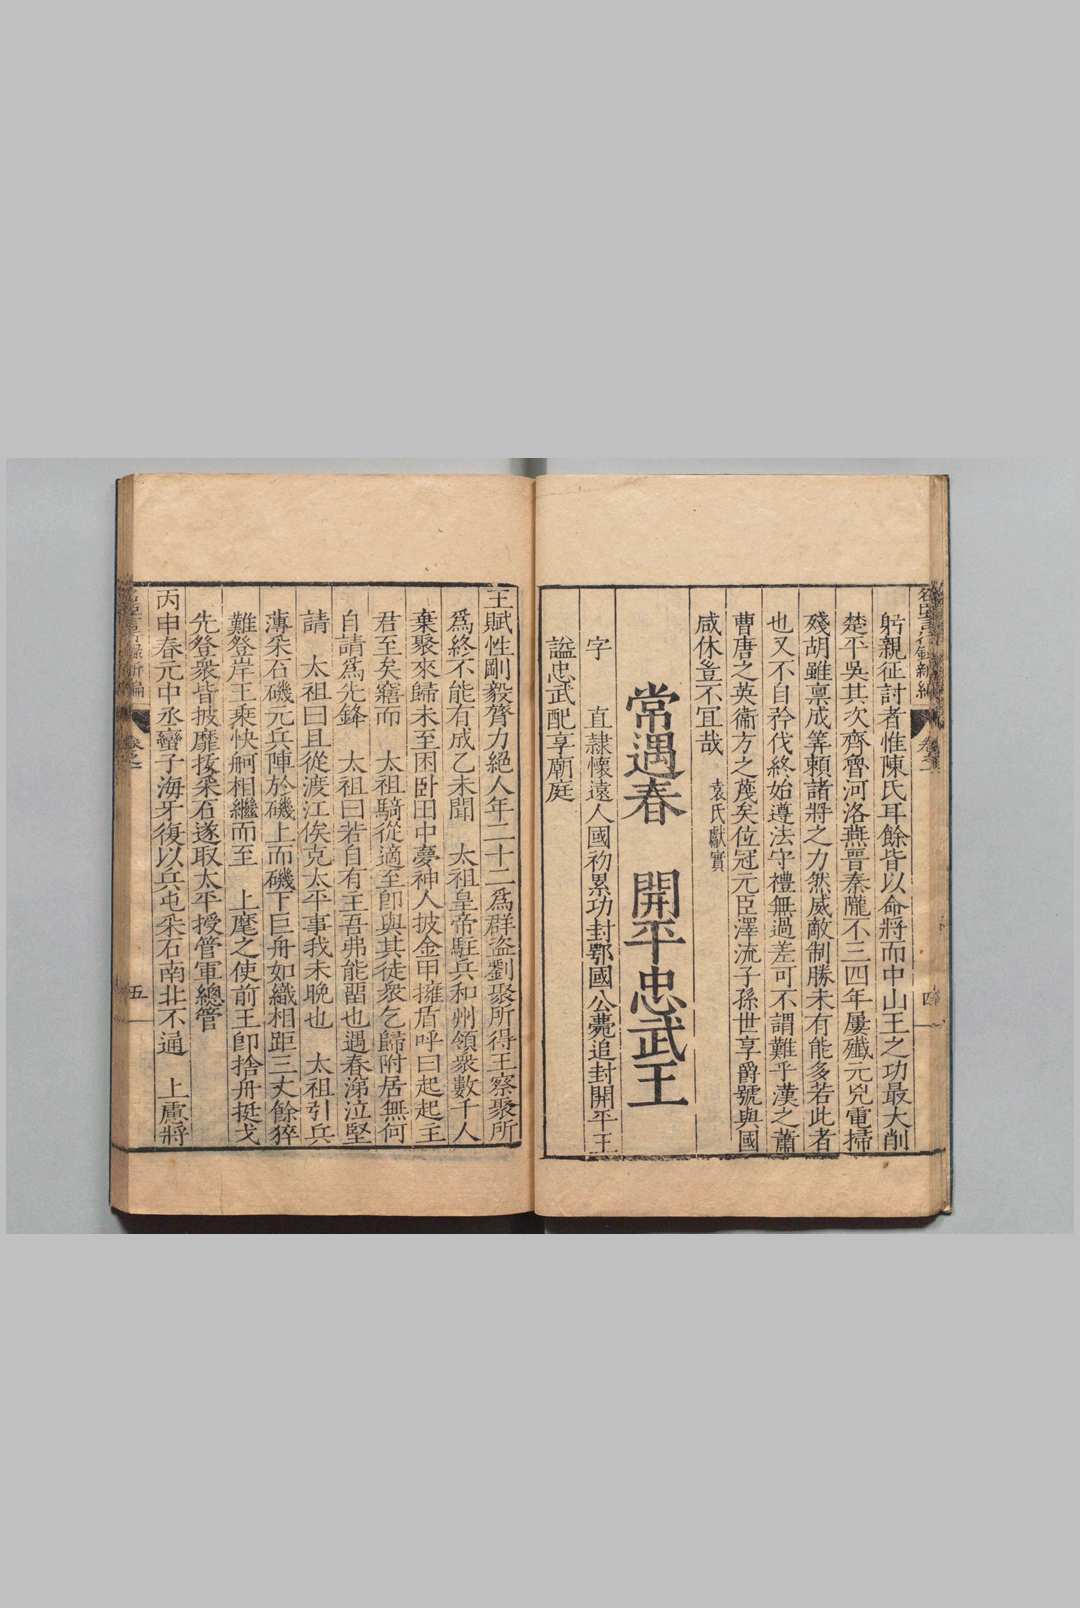 躬親征討者惟陳氏耳餘皆以命將而中山王之功最大削
楚平吳其次齊魯河洛燕晉秦隴不三四年屢殲元兇電掃
殘胡雖禀成筭賴諸將之力然威敵制勝未有能多若此者
也又不自矜伐終始遵法守禮無過差可不謂難乎漢之蕭
曹唐之英衞方之蔑矣位冠元臣澤流子孫世享爵號與國
咸休豈不宜哉 袁氏獻實
常遇春 開平忠武王
字 直隸懷遠人國初累功封鄂國公薨追封開平王
謚忠武配享廟庭
王賦性剛毅膂力絕人年二十二爲群盜劉聚所得王察聚所
爲終不能有成乙未聞 太祖皇帝駐兵和州領衆數千人
棄聚來歸未至困卧田中夢神人披金甲擁盾呼曰起起主
君至矣寤而 太祖騎從適至卽與其徒衆乞歸附居無何
自請爲先鋒 太祖曰若自有主吾弗能留也遇春涕泣堅
請 太祖曰且從渡江俟克太平事我未晩也 太祖引兵
薄采石磯元兵陣於磯上而磯下巨舟如織相距三丈餘猝
難登岸王乘快舸相繼而至 上麾之使前王卽捨舟挺戈
先登衆皆披靡拔采石遂取太平授管軍總管
丙申春元中丞蠻子海牙復以兵屯采石南北不通 上慮將
五